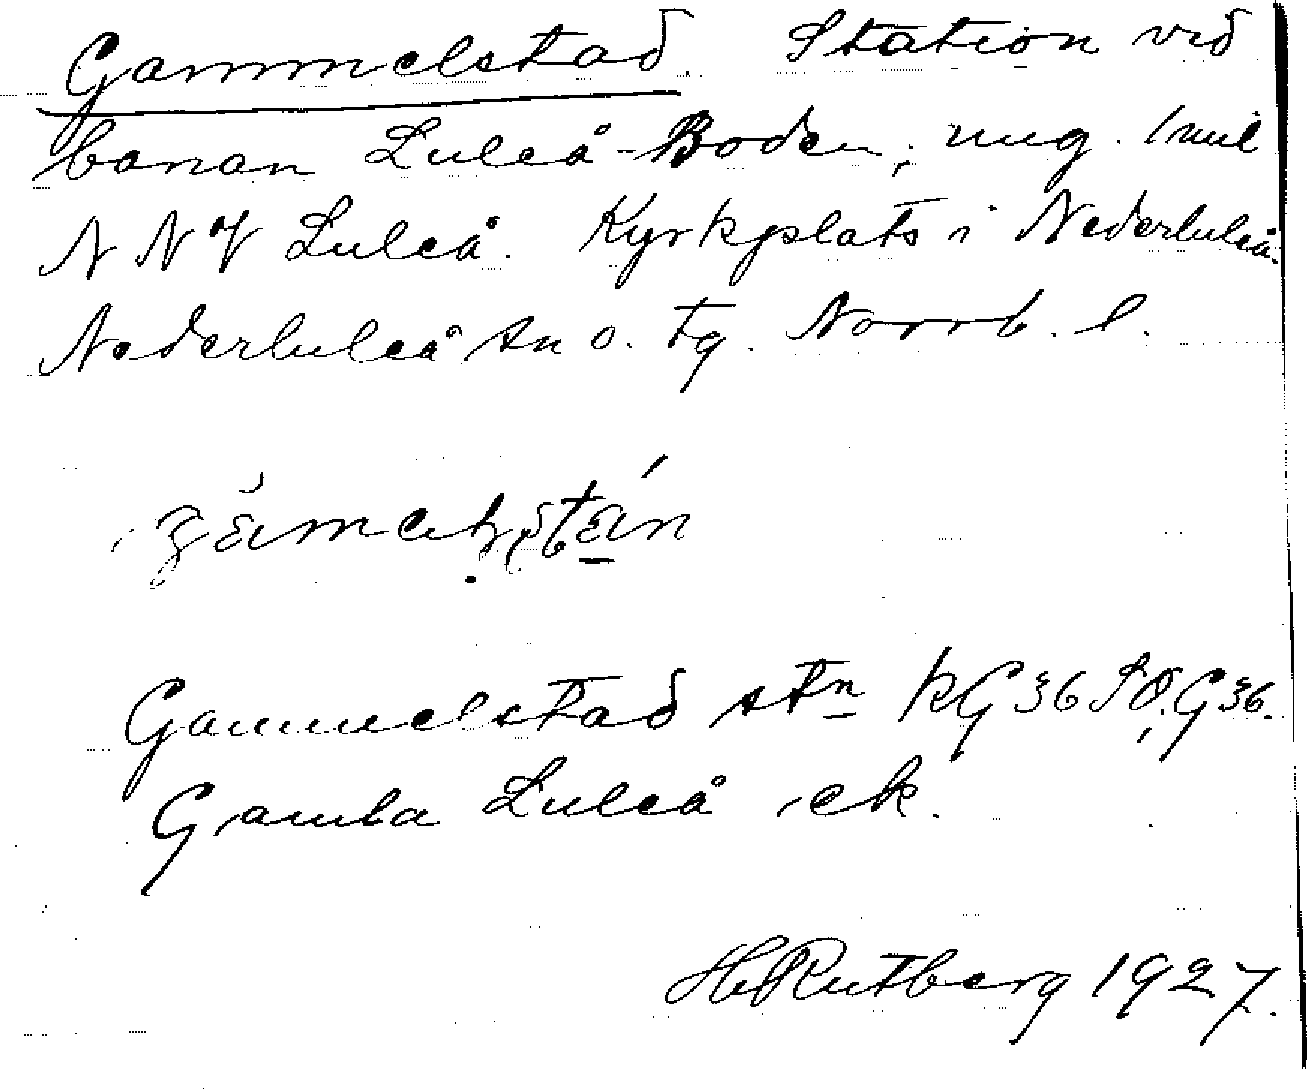 Gammelstad. Station vid
banan Luleå-Boden, ung. 1 mil
N N V Luleå. Kyrkplats i Nederluleå.
Nederluleå sn o. tg. Norrb. l.
Gammelstad stn kG 36 SO. G 36.
Gamla Luleå ek.
H Rutberg 1927.